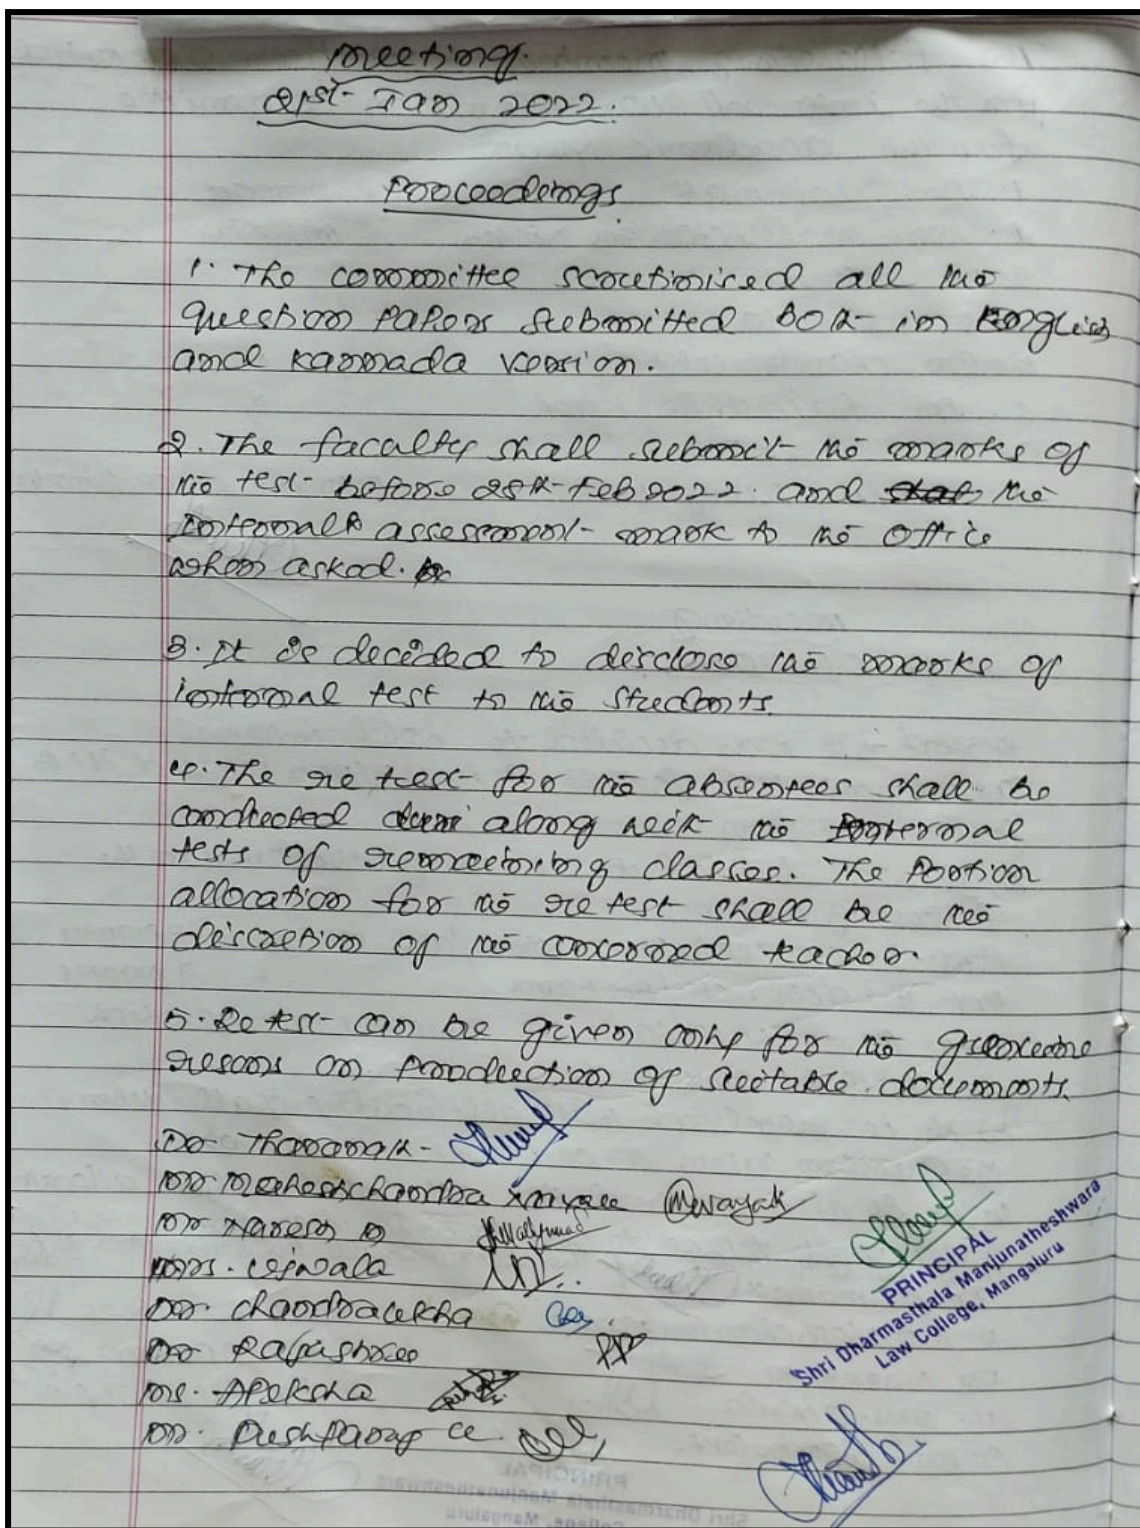 Meeting.
21st Jan 2022.
Proceedings
1. The committee scrutinised all the
question papers submitted both in English
and Kannada version.
2. The faculty shall submit the marks of
the test before 28th Feb 2022. and the
internal assessment mark to the office
when asked.
3. It is decided to disclose the marks of
internal test to the students.
4. The re test for the absentees shall be
conducted along with the internal
tests of remaining classes. The portion
allocation for the re test shall be the
discretion of the concerned teacher.
5. Re test can be given only for the genuine
resons on production of suitable documents.
Dr Tharanath
Mr Maheshchandra Nayak
Mr Naresh
Mrs. Ujwala
Dr. Chandralekha
Dr Rajashree
Ms. Apeksha
Mr. Pushparaj K.
PRINCIPAL
Shri Dharmasthala Manjunatheshwara
Law College, Mangaluru